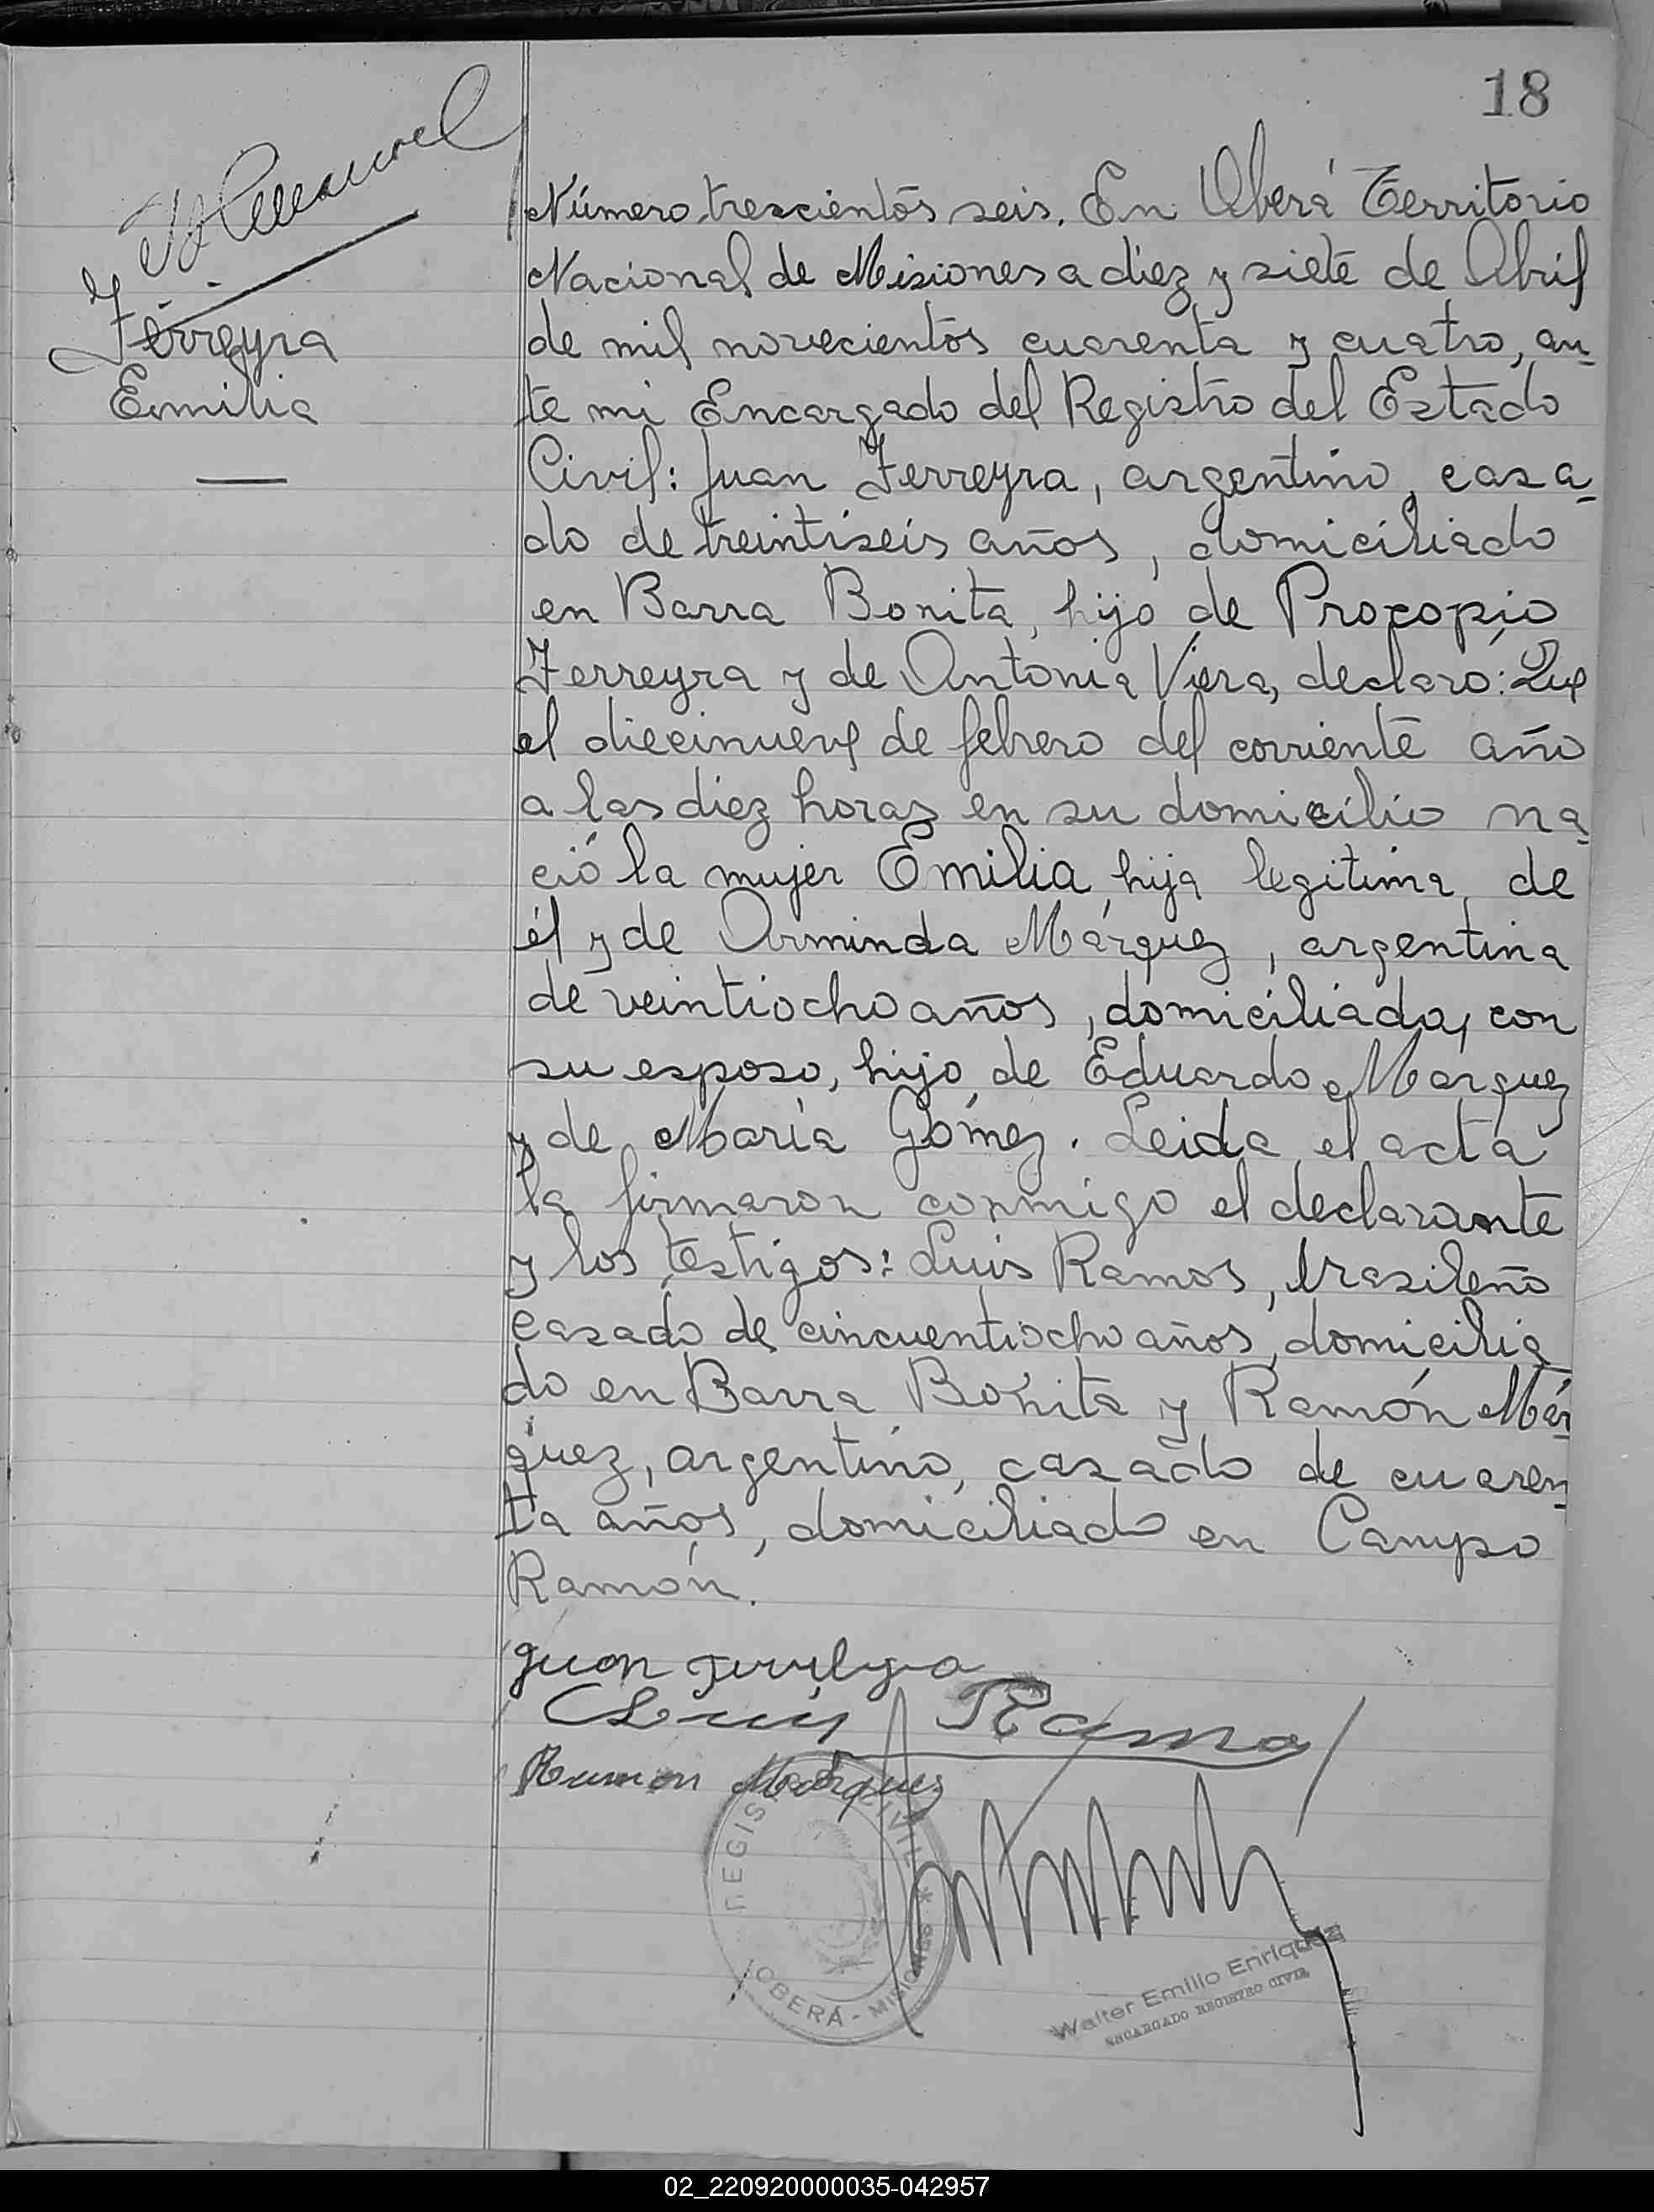 18
Ferreyra
Emilia
Número trescientos seis. En Oberá Territorio
Nacional de Misiones a diez y siete de Abril
de mil novecientos cuarenta y cuatro, an-
te mi Encargado del Registro del Estado
Civil: Juan Ferreyra, argentino, casa-
do de treintiseis años, domiciliado
en Barra Bonita, hijo de Procopio
Ferreyra y de Antonia Viera, declaró: Que
el diecinueve de febrero del corriente año
a las diez horas en su domicilio na-
ció la mujer Emilia, hija legitima, de
él y de Arminda Márquez, argentina
de veintiocho años, domiciliada, con
su esposo, hijo de Eduardo Marquez
y de María Gómez. Leida el acta
la firmaron conmigo el declarante
y los testigos: Luis Ramos, brasileño
casado de cincuentiocho años, domicilia-
do en Barra Bonita y Ramón Már-
quez, argentino, casado de cuaren-
ta años, domiciliado en Campo
Ramón.
Juan Ferreyra
Luis Ramo
Ramon Marquez
REGISTRO CIVIL * OBERÁ - MISIONES
Walter Emilio Enriquez
ENCARGADO REGISTRO CIVIL
02_220920000035-042957